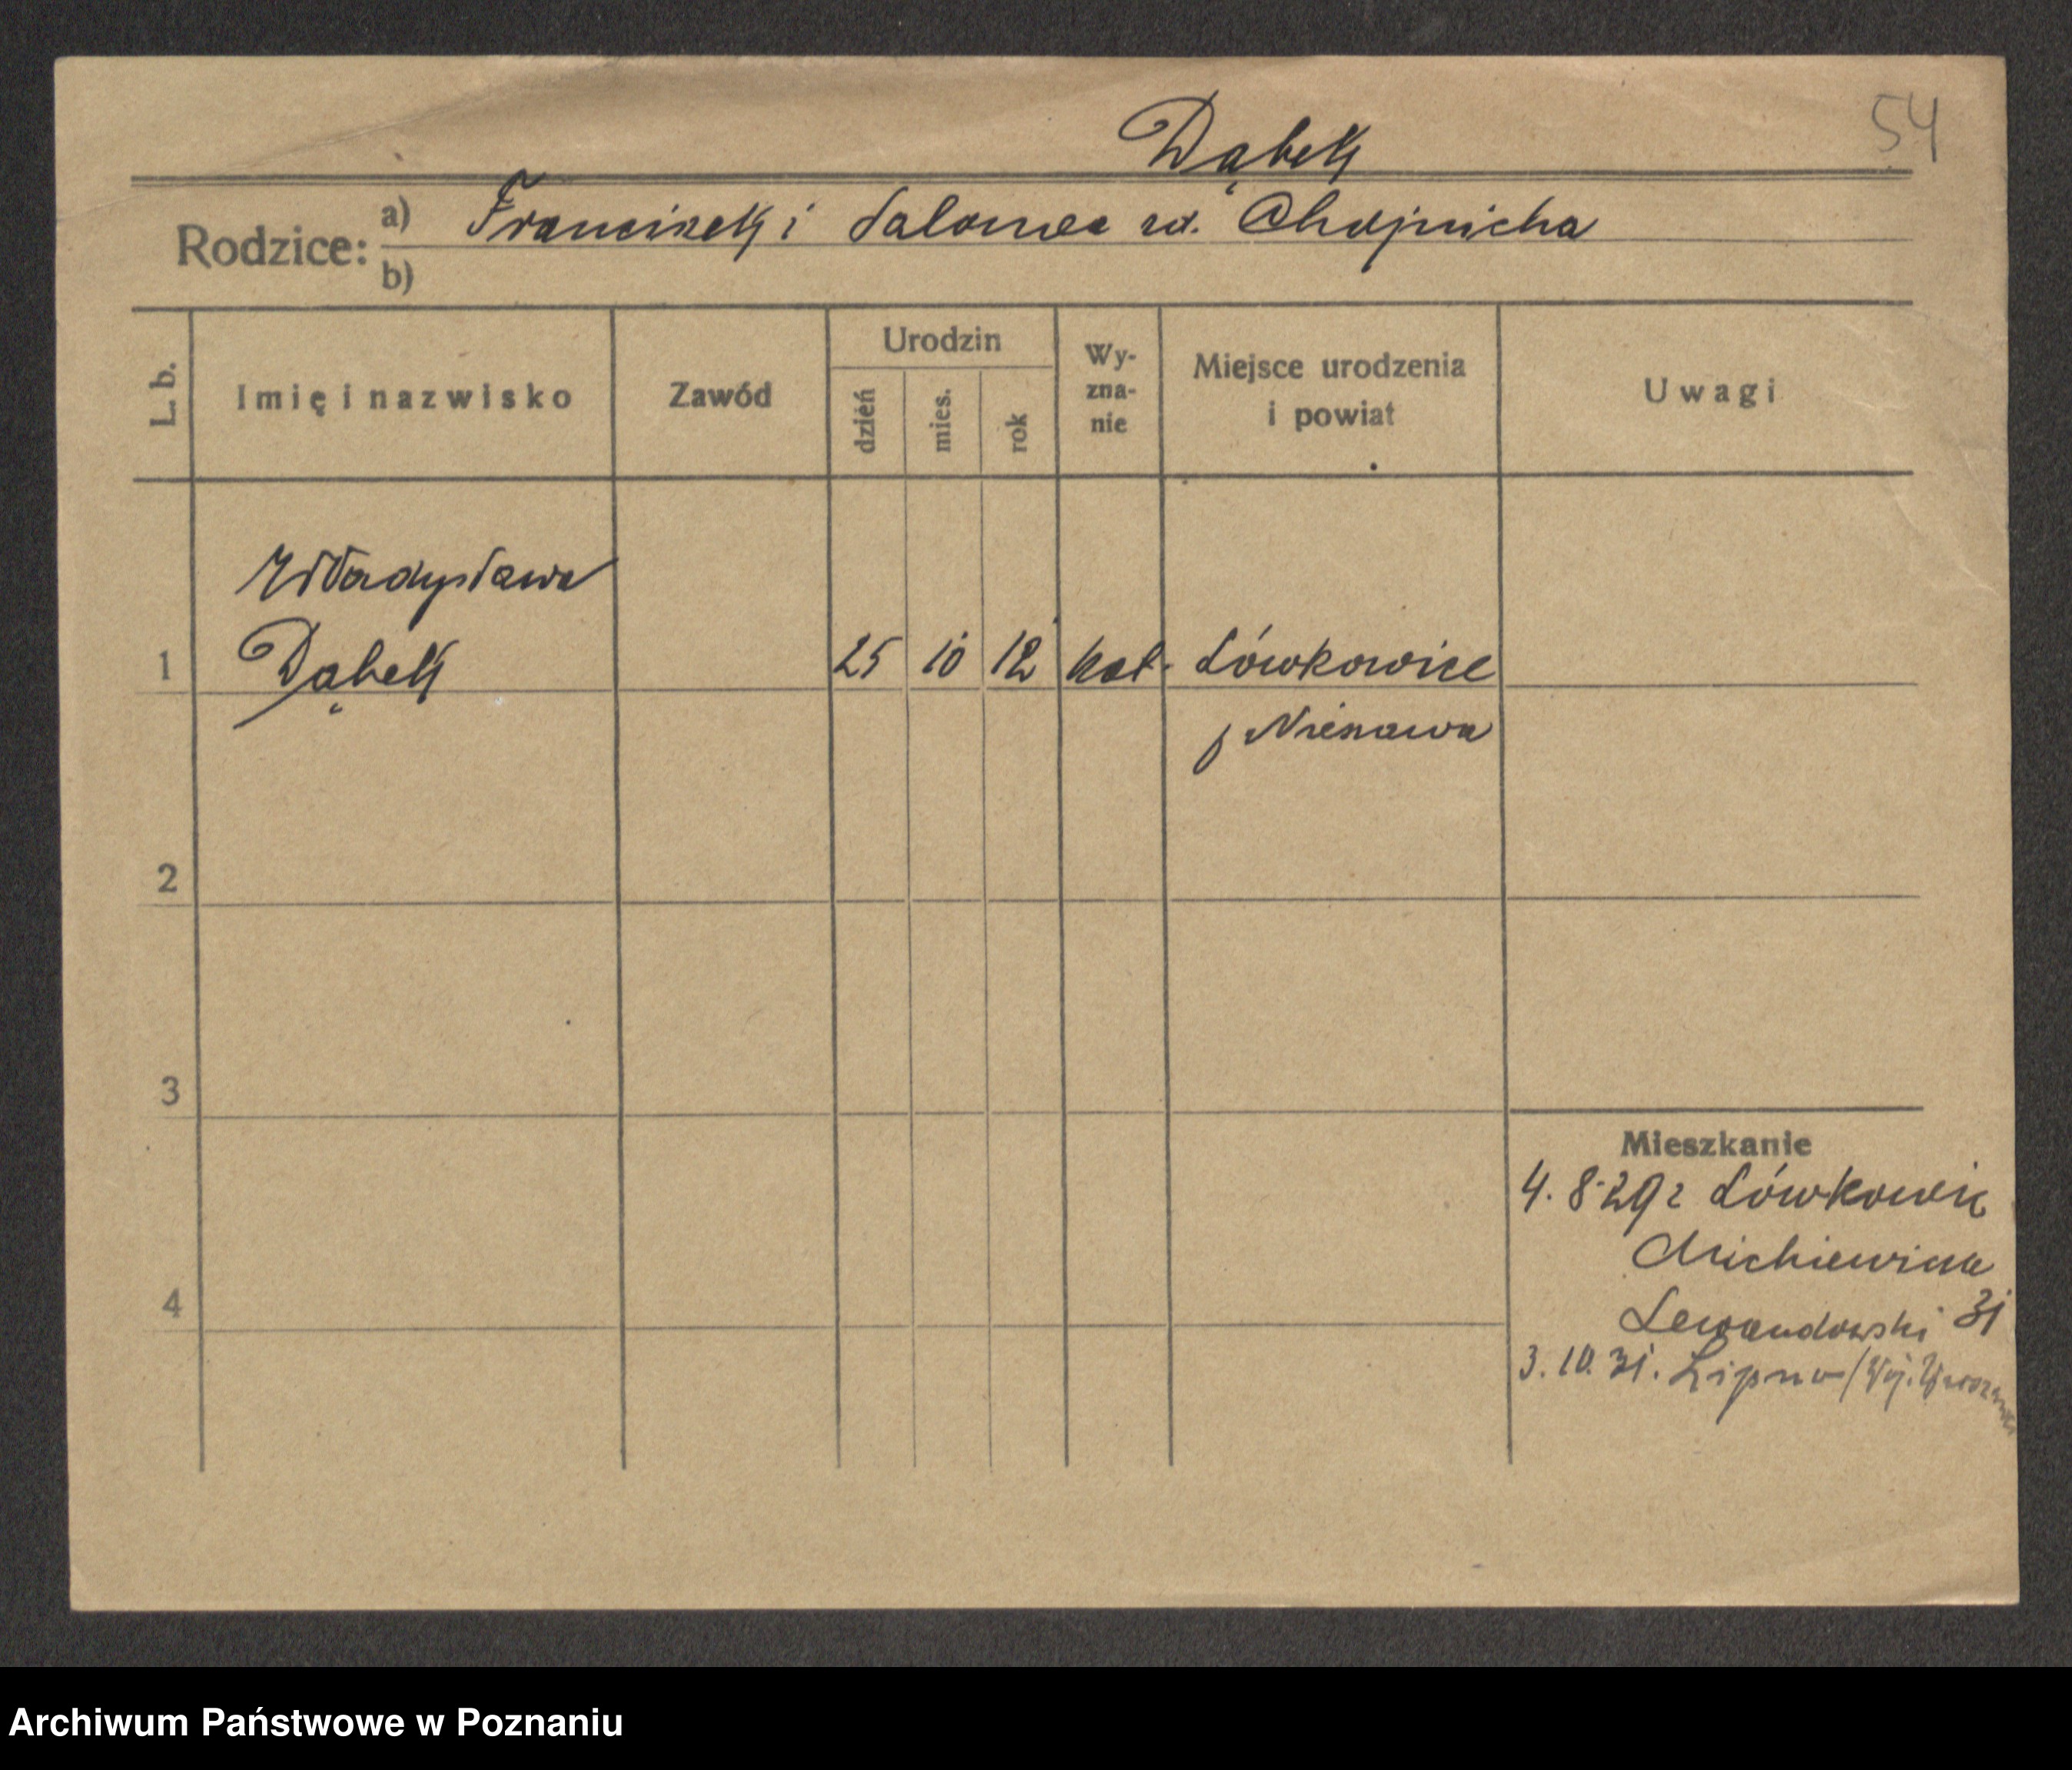 54
Dąbek
Rodzice: a) Franciszek i Salomea rd. Chojnicka
b)
L. b. Imię i nazwisko Zawód Urodzin dzień mies. rok Wy-zna-nie Miejsce urodzenia i powiat Uwagi
Władysława
1 Dąbek 25 10 12 kat. Lówkowice
p Nieszawa
2
3
Mieszkanie
4. 8. 29 z Lówkowic
Mickiewicza
4
Lewandowski 31
3. 10. 31. Lipno / Woj.
Archiwum Państwowe w Poznaniu